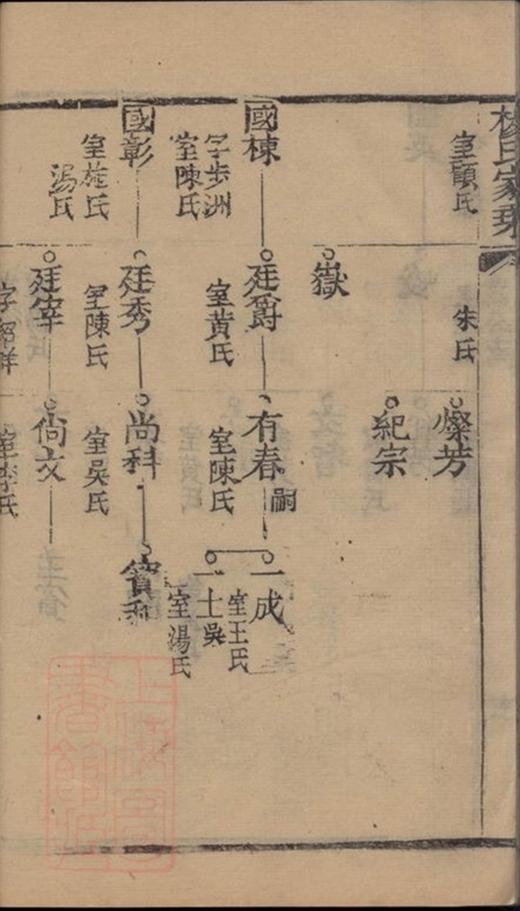 楊氏家乘
室顧氏
朱氏
燦芳
紀宗
嶽
國棟
字步洲
室陳氏
廷爵
室黃氏
有春
嗣
室陳氏
一成
室王氏
一士
吳
室湯氏
國彰
室施氏
湯氏
廷秀
室陳氏
尚科
室吳氏
廷宰
尚文
室李氏